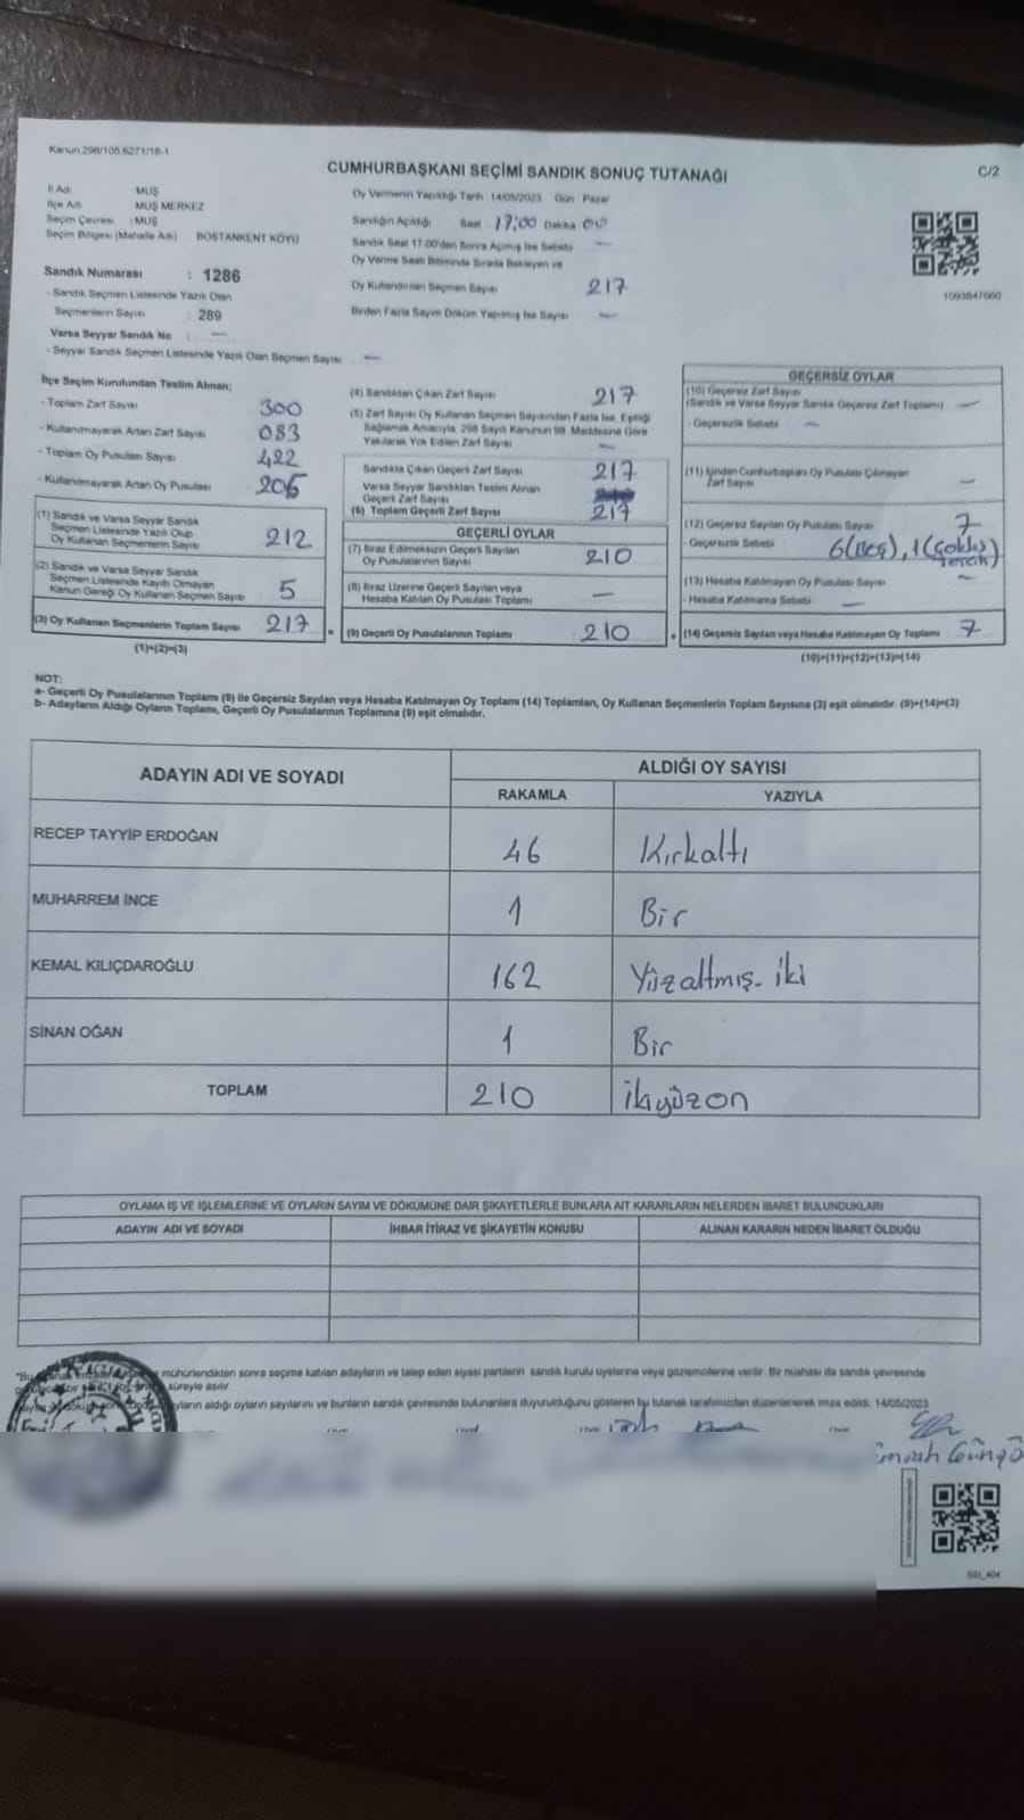 Kanun 298/105 6271/18-1
CUMHURBAŞKANI SEÇİMİ SANDIK SONUÇ TUTANAĞI
C/2
İl Adı : MUŞ
İlçe Adı : MUŞ MERKEZ
Seçim Çevresi : MUŞ
Seçim Bölgesi (Mahalle Adı) BOSTANKENT KÖYÜ
Sandık Numarası : 1286
- Sandık Seçmen Listesinde Yazılı Olan
Seçmenlerin Sayısı : 289
Varsa Seyyar Sandık No : —
- Seyyar Sandık Seçmen Listesinde Yazılı Olan Seçmen Sayısı —
Oy Vermenin Yapıldığı Tarih 14/05/2023 Gün Pazar
Sandığın Açıldığı Saat 17:00 Dakika
Sandık Saat 17.00'den Sonra Açılmış İse Sebebi —
Oy Verme Saati Bitiminde Sırada Bekleyen ve
Oy Kullandırılan Seçmen Sayısı 217
Birden Fazla Sayım Döküm Yapılmış İse Sayısı —
1093847660
İlçe Seçim Kurulundan Teslim Alınan;
- Toplam Zarf Sayısı 300
- Kullanılmayarak Artan Zarf Sayısı 083
- Toplam Oy Pusulası Sayısı 422
- Kullanılmayarak Artan Oy Pusulası 205
(1) Sandık ve Varsa Seyyar Sandık
Seçmen Listesinde Yazılı Olup
Oy Kullanan Seçmenlerin Sayısı 212
(2) Sandık ve Varsa Seyyar Sandık
Seçmen Listesinde Kayıtlı Olmayan
Kanun Gereği Oy Kullanan Seçmen Sayısı 5
(3) Oy Kullanan Seçmenlerin Toplam Sayısı 217
(1)+(2)=(3)
(4) Sandıktan Çıkan Zarf Sayısı 217
(5) Zarf Sayısı Oy Kullanan Seçmen Sayısından Fazla İse, Eşitliği
Sağlamak Amacıyla, 298 Sayılı Kanunun 98. Maddesine Göre
Yakılarak Yok Edilen Zarf Sayısı —
Sandıkta Çıkan Geçerli Zarf Sayısı 217
Varsa Seyyar Sandıktan Teslim Alınan
Geçerli Zarf Sayısı
(6) Toplam Geçerli Zarf Sayısı 217
GEÇERLİ OYLAR
(7) İtiraz Edilmeksizin Geçerli Sayılan
Oy Pusulalarının Sayısı 210
(8) İtiraz Üzerine Geçerli Sayılan veya
Hesaba Katılan Oy Pusulası Toplamı —
(9) Geçerli Oy Pusulalarının Toplamı 210
GEÇERSİZ OYLAR
(10) Geçersiz Zarf Sayısı
(Sandık ve Varsa Seyyar Sandık Geçersiz Zarf Toplamı) —
- Geçersizlik Sebebi —
(11) İçinden Cumhurbaşkanı Oy Pusulası Çıkmayan
Zarf Sayısı —
(12) Geçersiz Sayılan Oy Pusulası Sayısı 7
- Geçersizlik Sebebi 6 (Boş), 1 (Çoklu tercih)
(13) Hesaba Katılmayan Oy Pusulası Sayısı —
- Hesaba Katılmama Sebebi —
(14) Geçersiz Sayılan veya Hesaba Katılmayan Oy Toplamı 7
(10)+(11)+(12)+(13)=(14)
NOT:
a- Geçerli Oy Pusulalarının Toplamı (9) ile Geçersiz Sayılan veya Hesaba Katılmayan Oy Toplamı (14) Toplamları, Oy Kullanan Seçmenlerin Toplam Sayısına (3) eşit olmalıdır. (9)+(14)=(3)
b- Adayların Aldığı Oyların Toplamı, Geçerli Oy Pusulalarının Toplamına (9) eşit olmalıdır.
ADAYIN ADI VE SOYADI
ALDIĞI OY SAYISI
RAKAMLA YAZIYLA
RECEP TAYYİP ERDOĞAN 46 Kırkaltı
MUHARREM İNCE 1 Bir
KEMAL KILIÇDAROĞLU 162 Yüzaltmış-iki
SİNAN OĞAN 1 Bir
TOPLAM 210 ikiyüzon
OYLAMA İŞ VE İŞLEMLERİNE VE OYLARIN SAYIM VE DÖKÜMÜNE DAİR ŞİKAYETLERLE BUNLARA AİT KARARLARIN NELERDEN İBARET BULUNDUKLARI
ADAYIN ADI VE SOYADI İHBAR İTİRAZ VE ŞİKAYETİN KONUSU ALINAN KARARIN NEDEN İBARET OLDUĞU
mühürlendikten sonra seçime katılan adayların ve talep eden siyasi partilerin sandık kurulu üyelerine veya gözlemcilerine verilir. Bir nüshası da sandık çevresinde
süreyle asılır.
aldığı oyların sayılarını ve bunların sandık çevresinde bulunanlara duyurulduğunu gösteren bu tutanak tarafımızdan düzenlenerek imza edildi. 14/05/2023